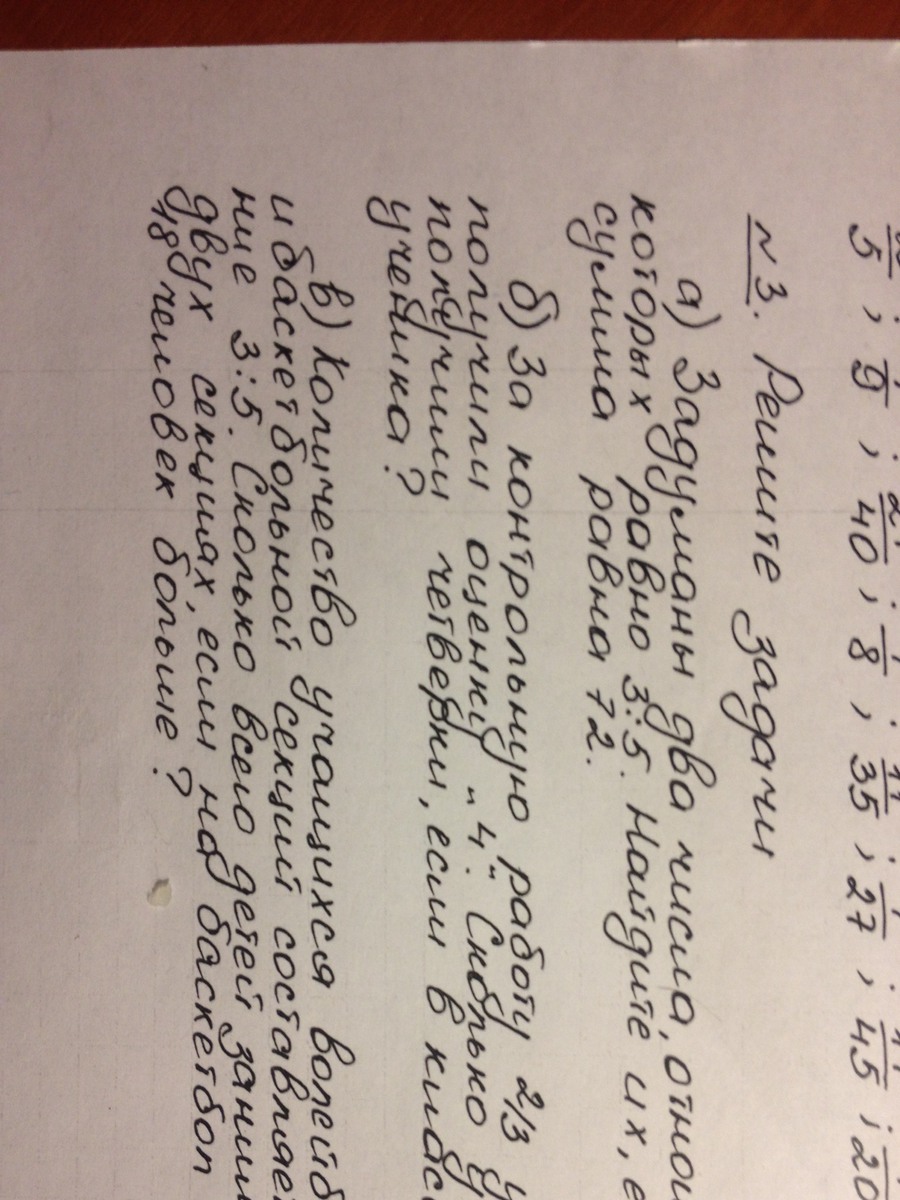 5 ; 9 ; 40 ; 8 ; 35 ; 27 ; 45 ; 20
№3. Решите задачи
а) Задуманы два числа, отнош
которых равно 3:5. Найдите их, е
сумма равна 72.
б) За контрольную работу 2/3 у
получили оценку "4". Сколько у
получили четверки, если в клас
ученика?
в) Количество учащихся волейб
и баскетбольной секций составляе
ние 3:5. Сколько всего детей заним
двух секциях, если на баскетбол
18 человек больше?